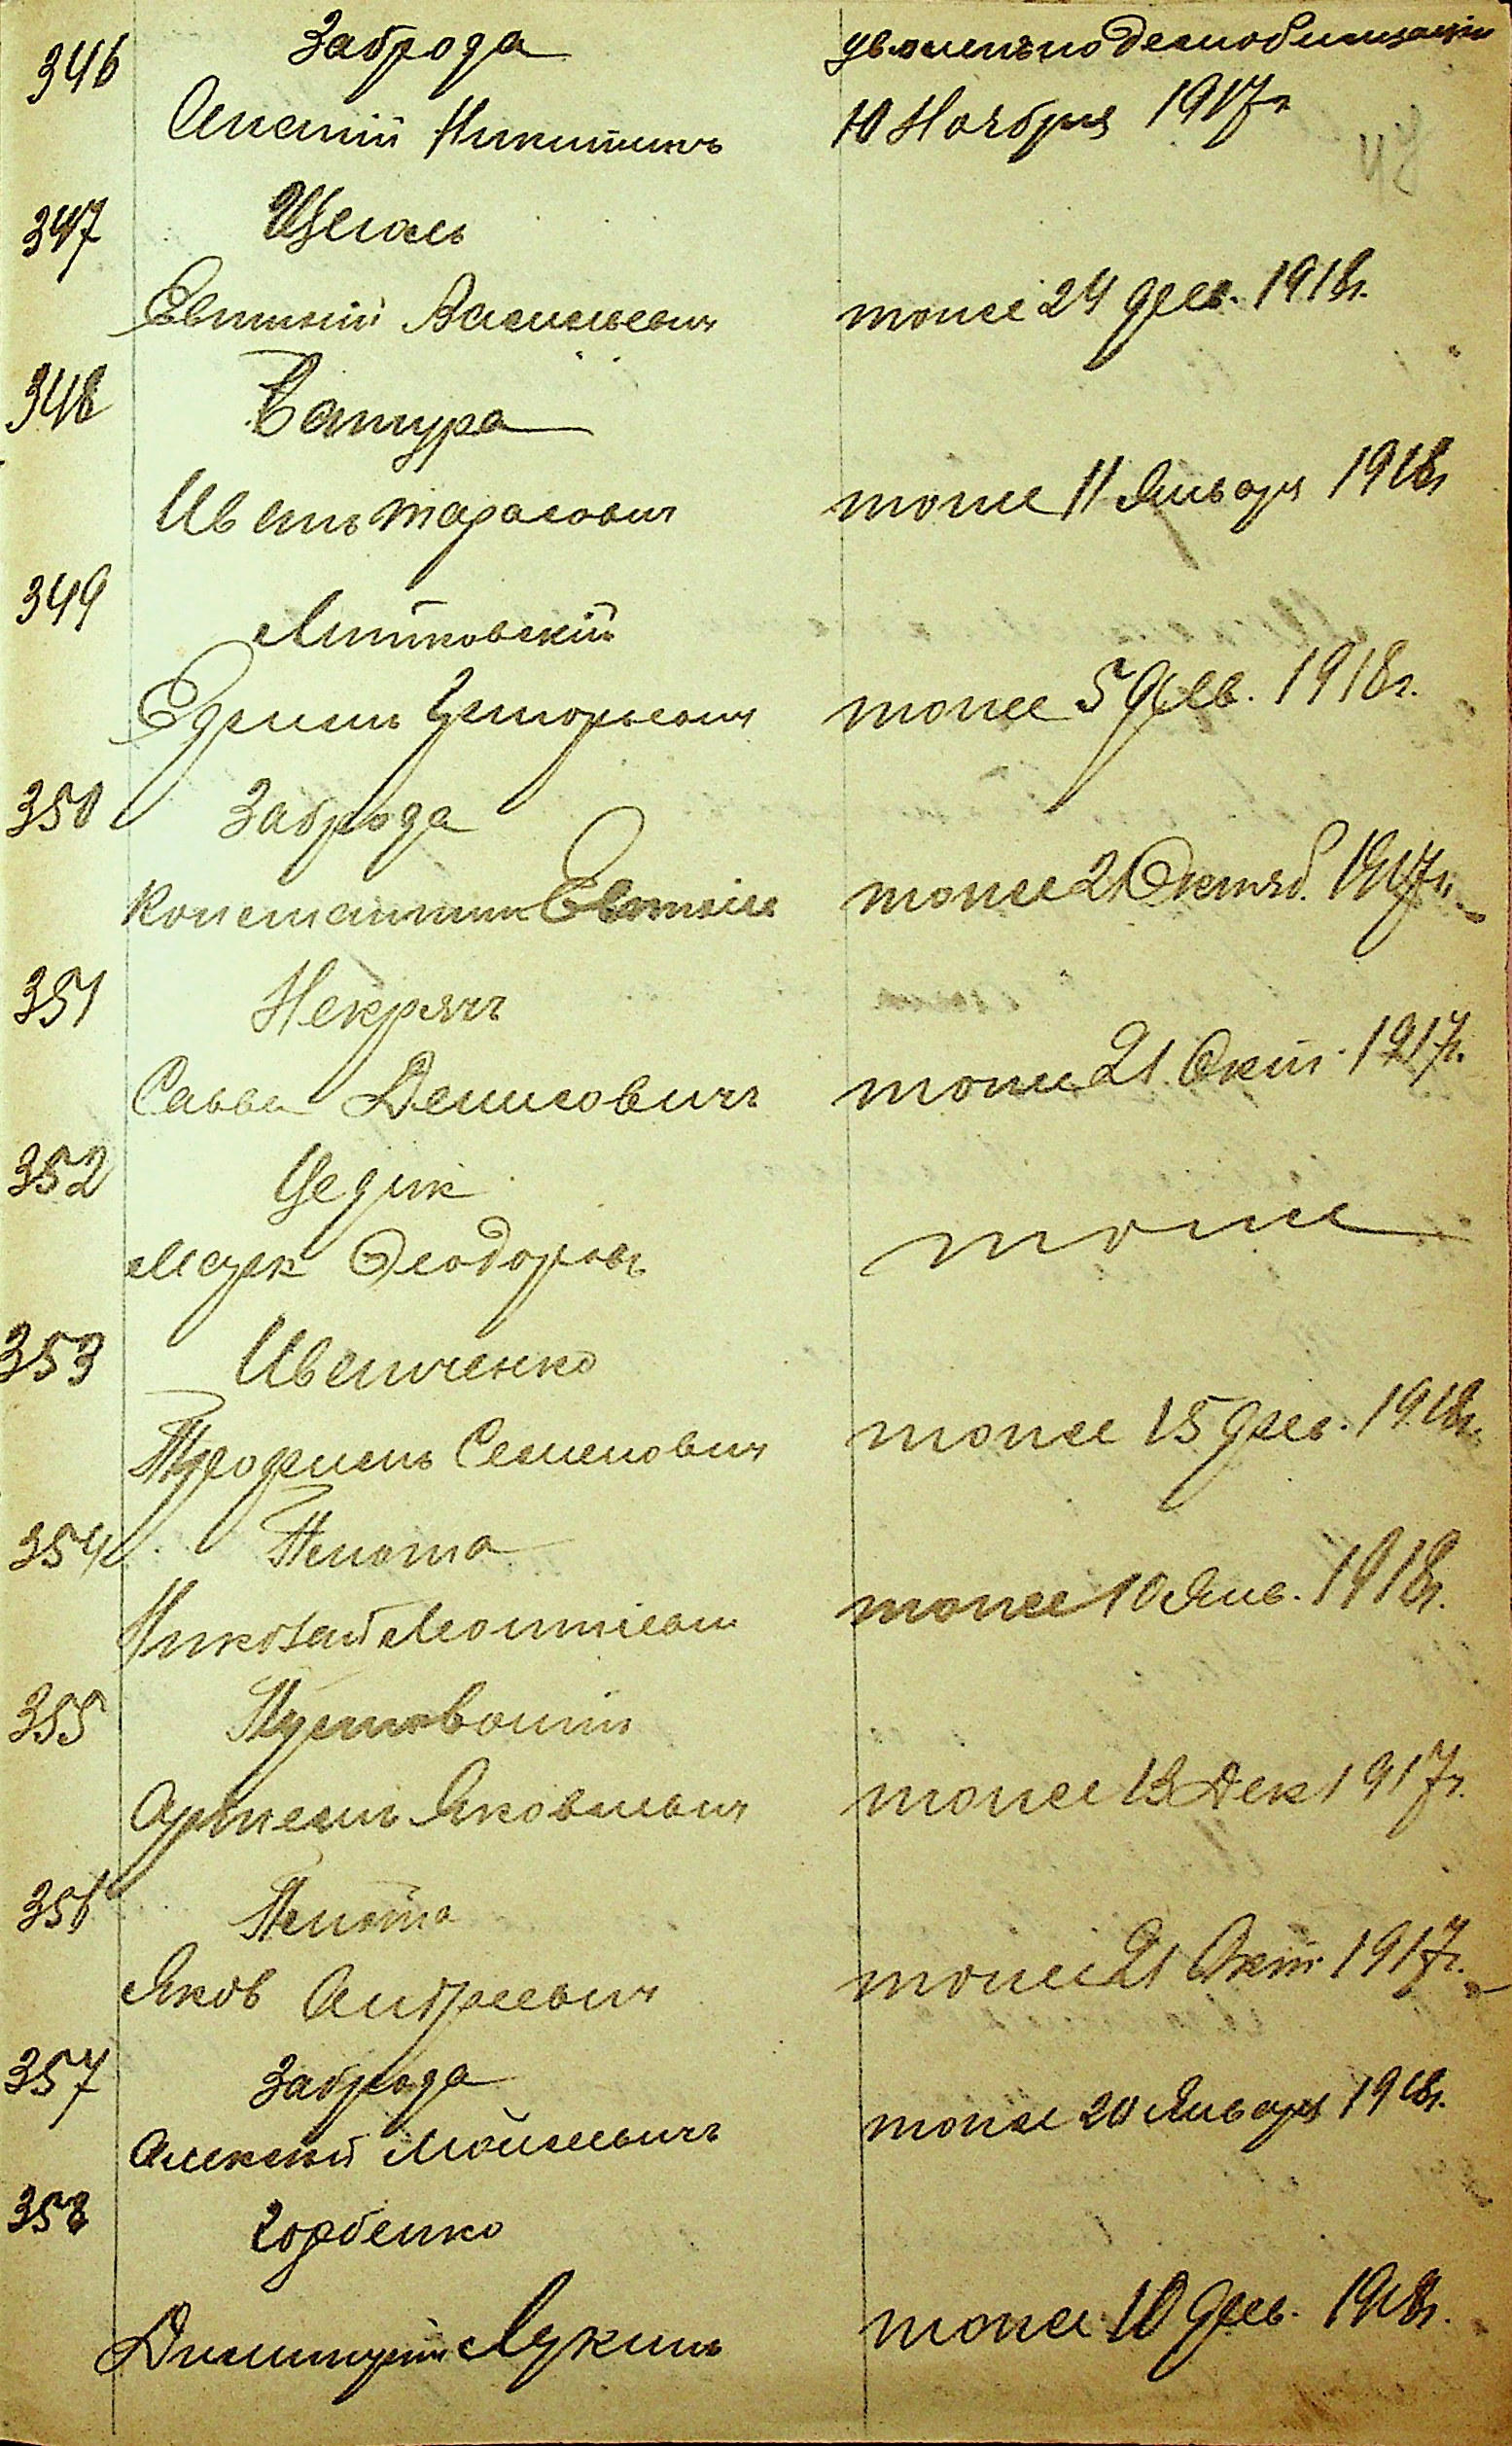 346 Заброда уволенъ по демобилизаціи
Ананій Никитичъ 10 Ноября 1917г
347
Евтихій Васильевич тоже 24 фев. 1918г.
348 Батура
Иванъ Тарасович тоже 11 Января 1918г
349 Литковскій
Ефимъ Григорьевич тоже 5 фев. 1918г.
350 Заброда
Константин тоже 21 Октяб. 1917г.
351 Некрячъ
Савва Денисовичъ тоже 21 Окт. 1917г.
352 Цедик
Марк Феодоровъ тоже
353 Иванченко
Трофимъ Семенович тоже 15 фев. 1918г.
354 Пенота
Николай тоже 10 Янв. 1918г.
355
Артемъ Яковлевич тоже 13 Дек 1917г.
356 Пенота
Яков Андреевич тоже 21 Окт. 1917г.
357 Заброда
Алексей Мойсеевичъ тоже 20 Января 1918г.
358 Горбенко
Димитрій Лукичъ тоже 10 фев. 1918г.